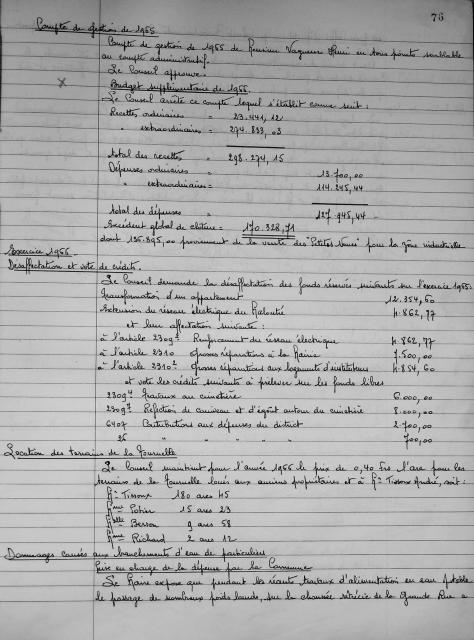 76
Compte de gestion de 1965
Compte de gestion de 1965 de Monsieur Vaqueur Henri en tous points semblable
au compte administratif.
Le Conseil approuve.
Budget supplémentaire de 1966.
Le Conseil arrête ce compte lequel s'établit comme suit :
Recettes ordinaires = 23.441,12
" extraordinaires = 274.833,03
total des recettes " 298.274,15
Dépenses ordinaires " 13.700,00
" extraordinaires = 114.245,44
total des dépenses " 127.945,44
Excédent global de clôture = 170.328,71
dont 135.895,00 proviennent de la vente des "Petites Vaures" pour la zône industrielle
Exercice 1966
Désaffectation et vote de crédits.
Le Conseil demande la désaffectation des fonds réservés suivants sur l'exercice 1965:
Transformation d'un appartement 12.354,60
Extension du réseau électrique du 4.862,77
et leur affectation suivante :
à l'article 2309² Renforcement du réseau électrique 4.862,77
à l'article 2310 Grosses réparations à la Mairie 7.500,00
à l'article 2310² Grosses réparations aux logements d'instituteurs 4.854,60
et vote les crédits suivants à prélever sur les fonds libres
2309⁴ Travaux au cimetière 6.000,00
2309⁷ Réfection de caniveau et d'égout autour du cimetière 8.000,00
6407 Contributions aux dépenses du district 2.700,00
" " " " 700,00
Location des terrains de la Tournelle
Le Conseil maintient pour l'année 1966 le prix de 0,40 Frs l'are pour les
terrains de la Tournelle loués aux anciens propriétaires et à Mr Tissoux André, soit :
Mr Tissoux 180 ares 45
Mme Potier 15 ares 23
Melle Besson 9 ares 58
Mme Richard 2 ares 12
Dommages causés aux branchements d'eau de particuliers
Prise en charge de la dépense par la Commune
Le Maire expose que pendant les récents travaux d'alimentation en eau potable
le passage de nombreux poids lourds, sur la chaussée rétrécie de la Grande Rue a